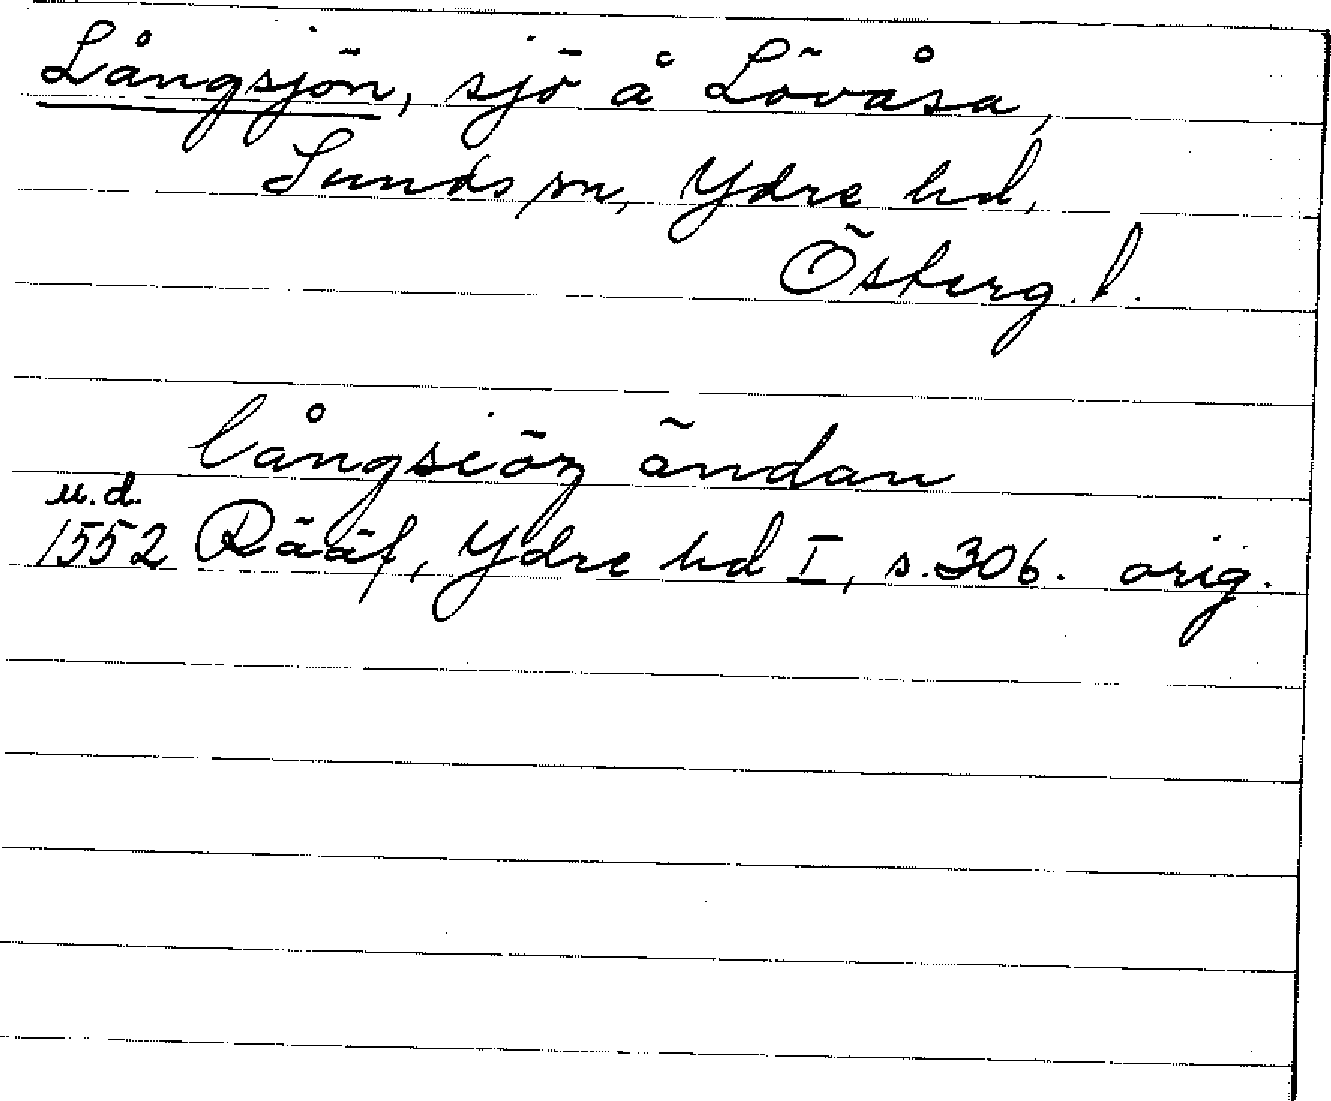 Långsjön, sjö å Lövåsa,
Sunds sn, Ydre hd,
Österg. l.
långsiöz ändan
u.d.
1552 Rääf, Ydre hd I, s. 306. orig.